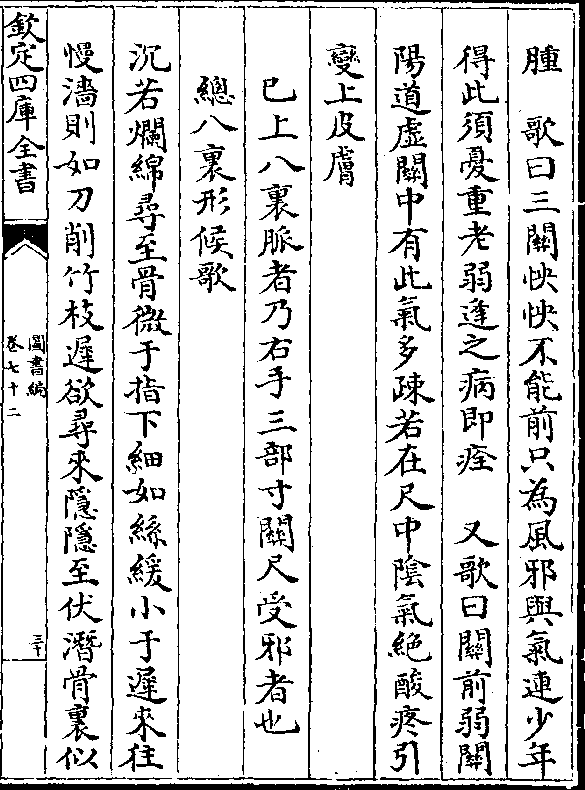 腫　歌曰三關怏怏不能前只為風邪與氣連少年
得此須憂重老弱逢之病即痊　又歌曰關前弱關
陽道虛關中有此氣多疎若在尺中陰氣絶酸疼引
變上皮膚
已上八裏脈者乃右手三部寸關尺受邪者也
總八裏形候歌
沉若爛綿尋至骨微于指下細如絲緩小于遲來往
慢濇則如刀削竹枝遲欲尋來隱隱至伏潛骨裏似
欽定四庫全書
圖書編
卷七十二
三十